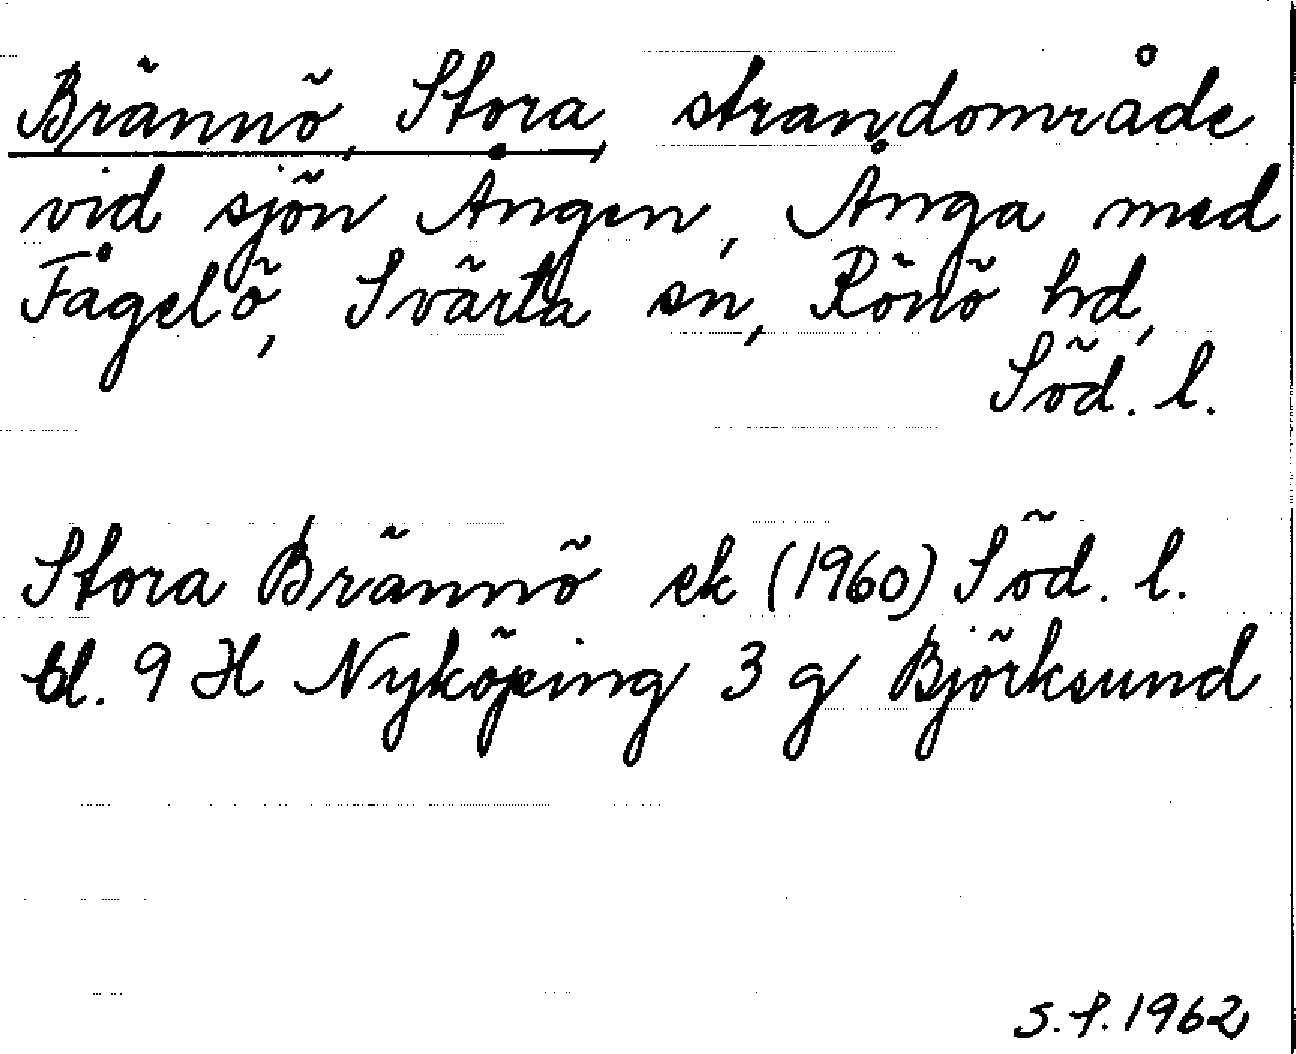 Brännö, Stora, strandområde
vid sjön Ången, Ånga med
Fågelö, Svärta sn, Rönö hd,
Söd. l.
Stora Brännö ek (1960) Söd. l.
bl. 9 H Nyköping 3 g Björksund
S.P. 1962